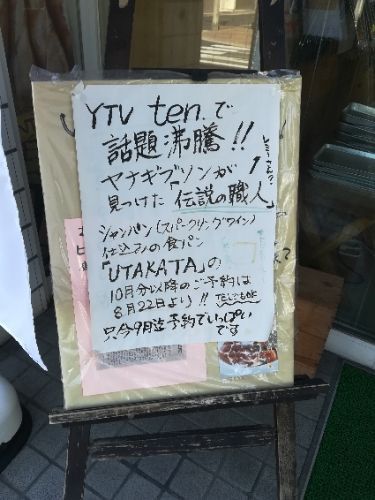 YTV ten.で
話題沸騰!!
ヤナギブソンが
見つけた「伝説の職人」
シャンパン(スパークリングワイン)
仕込みの食パン
「UTAKATA」の
10月分以降のご予約は
8月22日より!!
只今9月迄予約でいっぱい
です